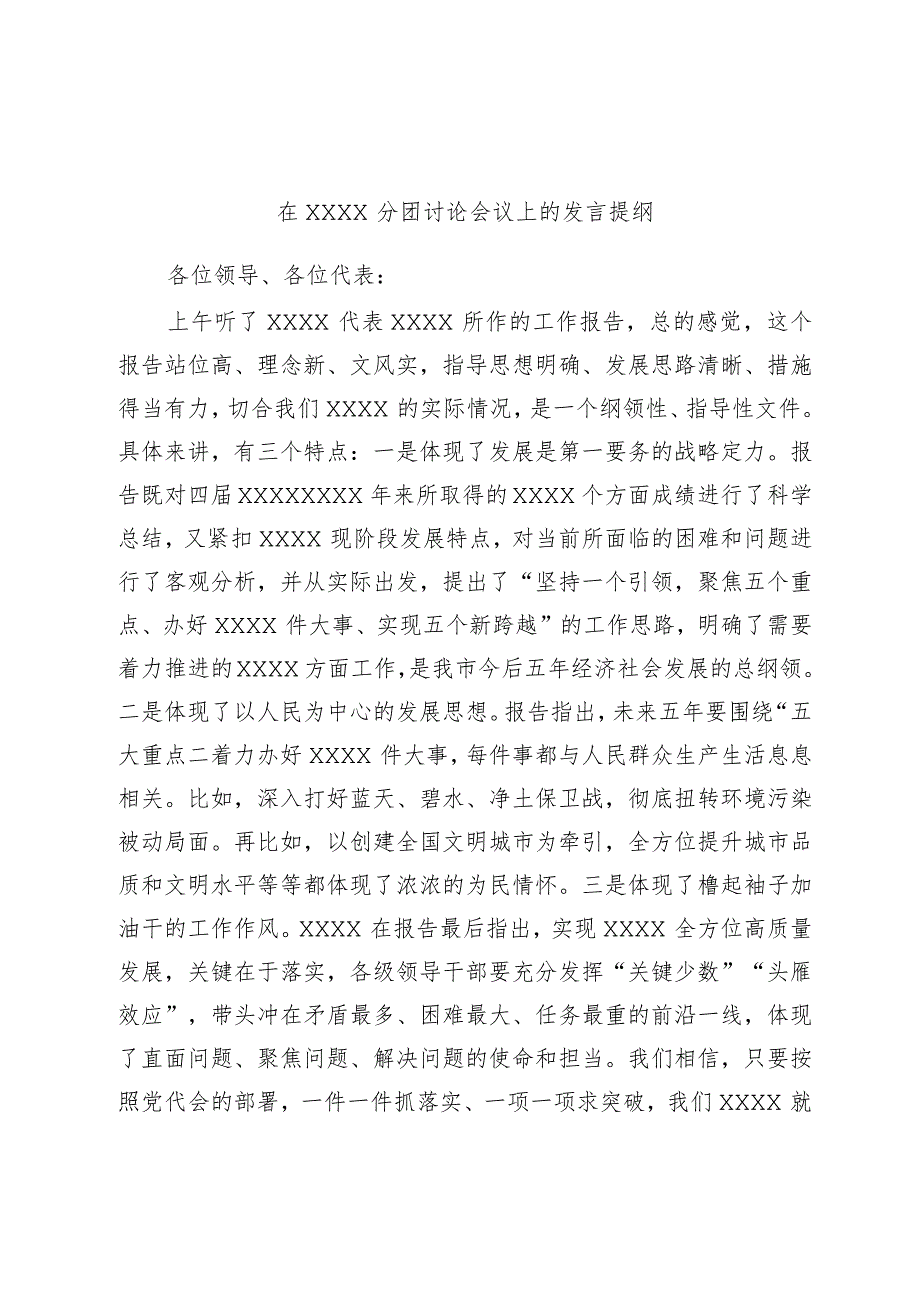 在 XXXX 分团讨论会议上的发言提纲
各位领导、各位代表：
上午听了 XXXX 代表 XXXX 所作的工作报告，总的感觉，这个
报告站位高、理念新、文风实，指导思想明确、发展思路清晰、措施
得当有力，切合我们 XXXX 的实际情况，是一个纲领性、指导性文件。
具体来讲，有三个特点：一是体现了发展是第一要务的战略定力。报
告既对四届 XXXXXXXX 年来所取得的 XXXX 个方面成绩进行了科学
总结，又紧扣 XXXX 现阶段发展特点，对当前所面临的困难和问题进
行了客观分析，并从实际出发，提出了“坚持一个引领，聚焦五个重
点、办好 XXXX 件大事、实现五个新跨越”的工作思路，明确了需要
着力推进的 XXXX 方面工作，是我市今后五年经济社会发展的总纲领。
二是体现了以人民为中心的发展思想。报告指出，未来五年要围绕“五
大重点二着力办好 XXXX 件大事，每件事都与人民群众生产生活息息
相关。比如，深入打好蓝天、碧水、净土保卫战，彻底扭转环境污染
被动局面。再比如，以创建全国文明城市为牵引，全方位提升城市品
质和文明水平等等都体现了浓浓的为民情怀。三是体现了橹起袖子加
油干的工作作风。XXXX 在报告最后指出，实现 XXXX 全方位高质量
发展，关键在于落实，各级领导干部要充分发挥“关键少数”“头雁
效应”，带头冲在矛盾最多、困难最大、任务最重的前沿一线，体现
了直面问题、聚焦问题、解决问题的使命和担当。我们相信，只要按
照党代会的部署，一件一件抓落实、一项一项求突破，我们 XXXX 就